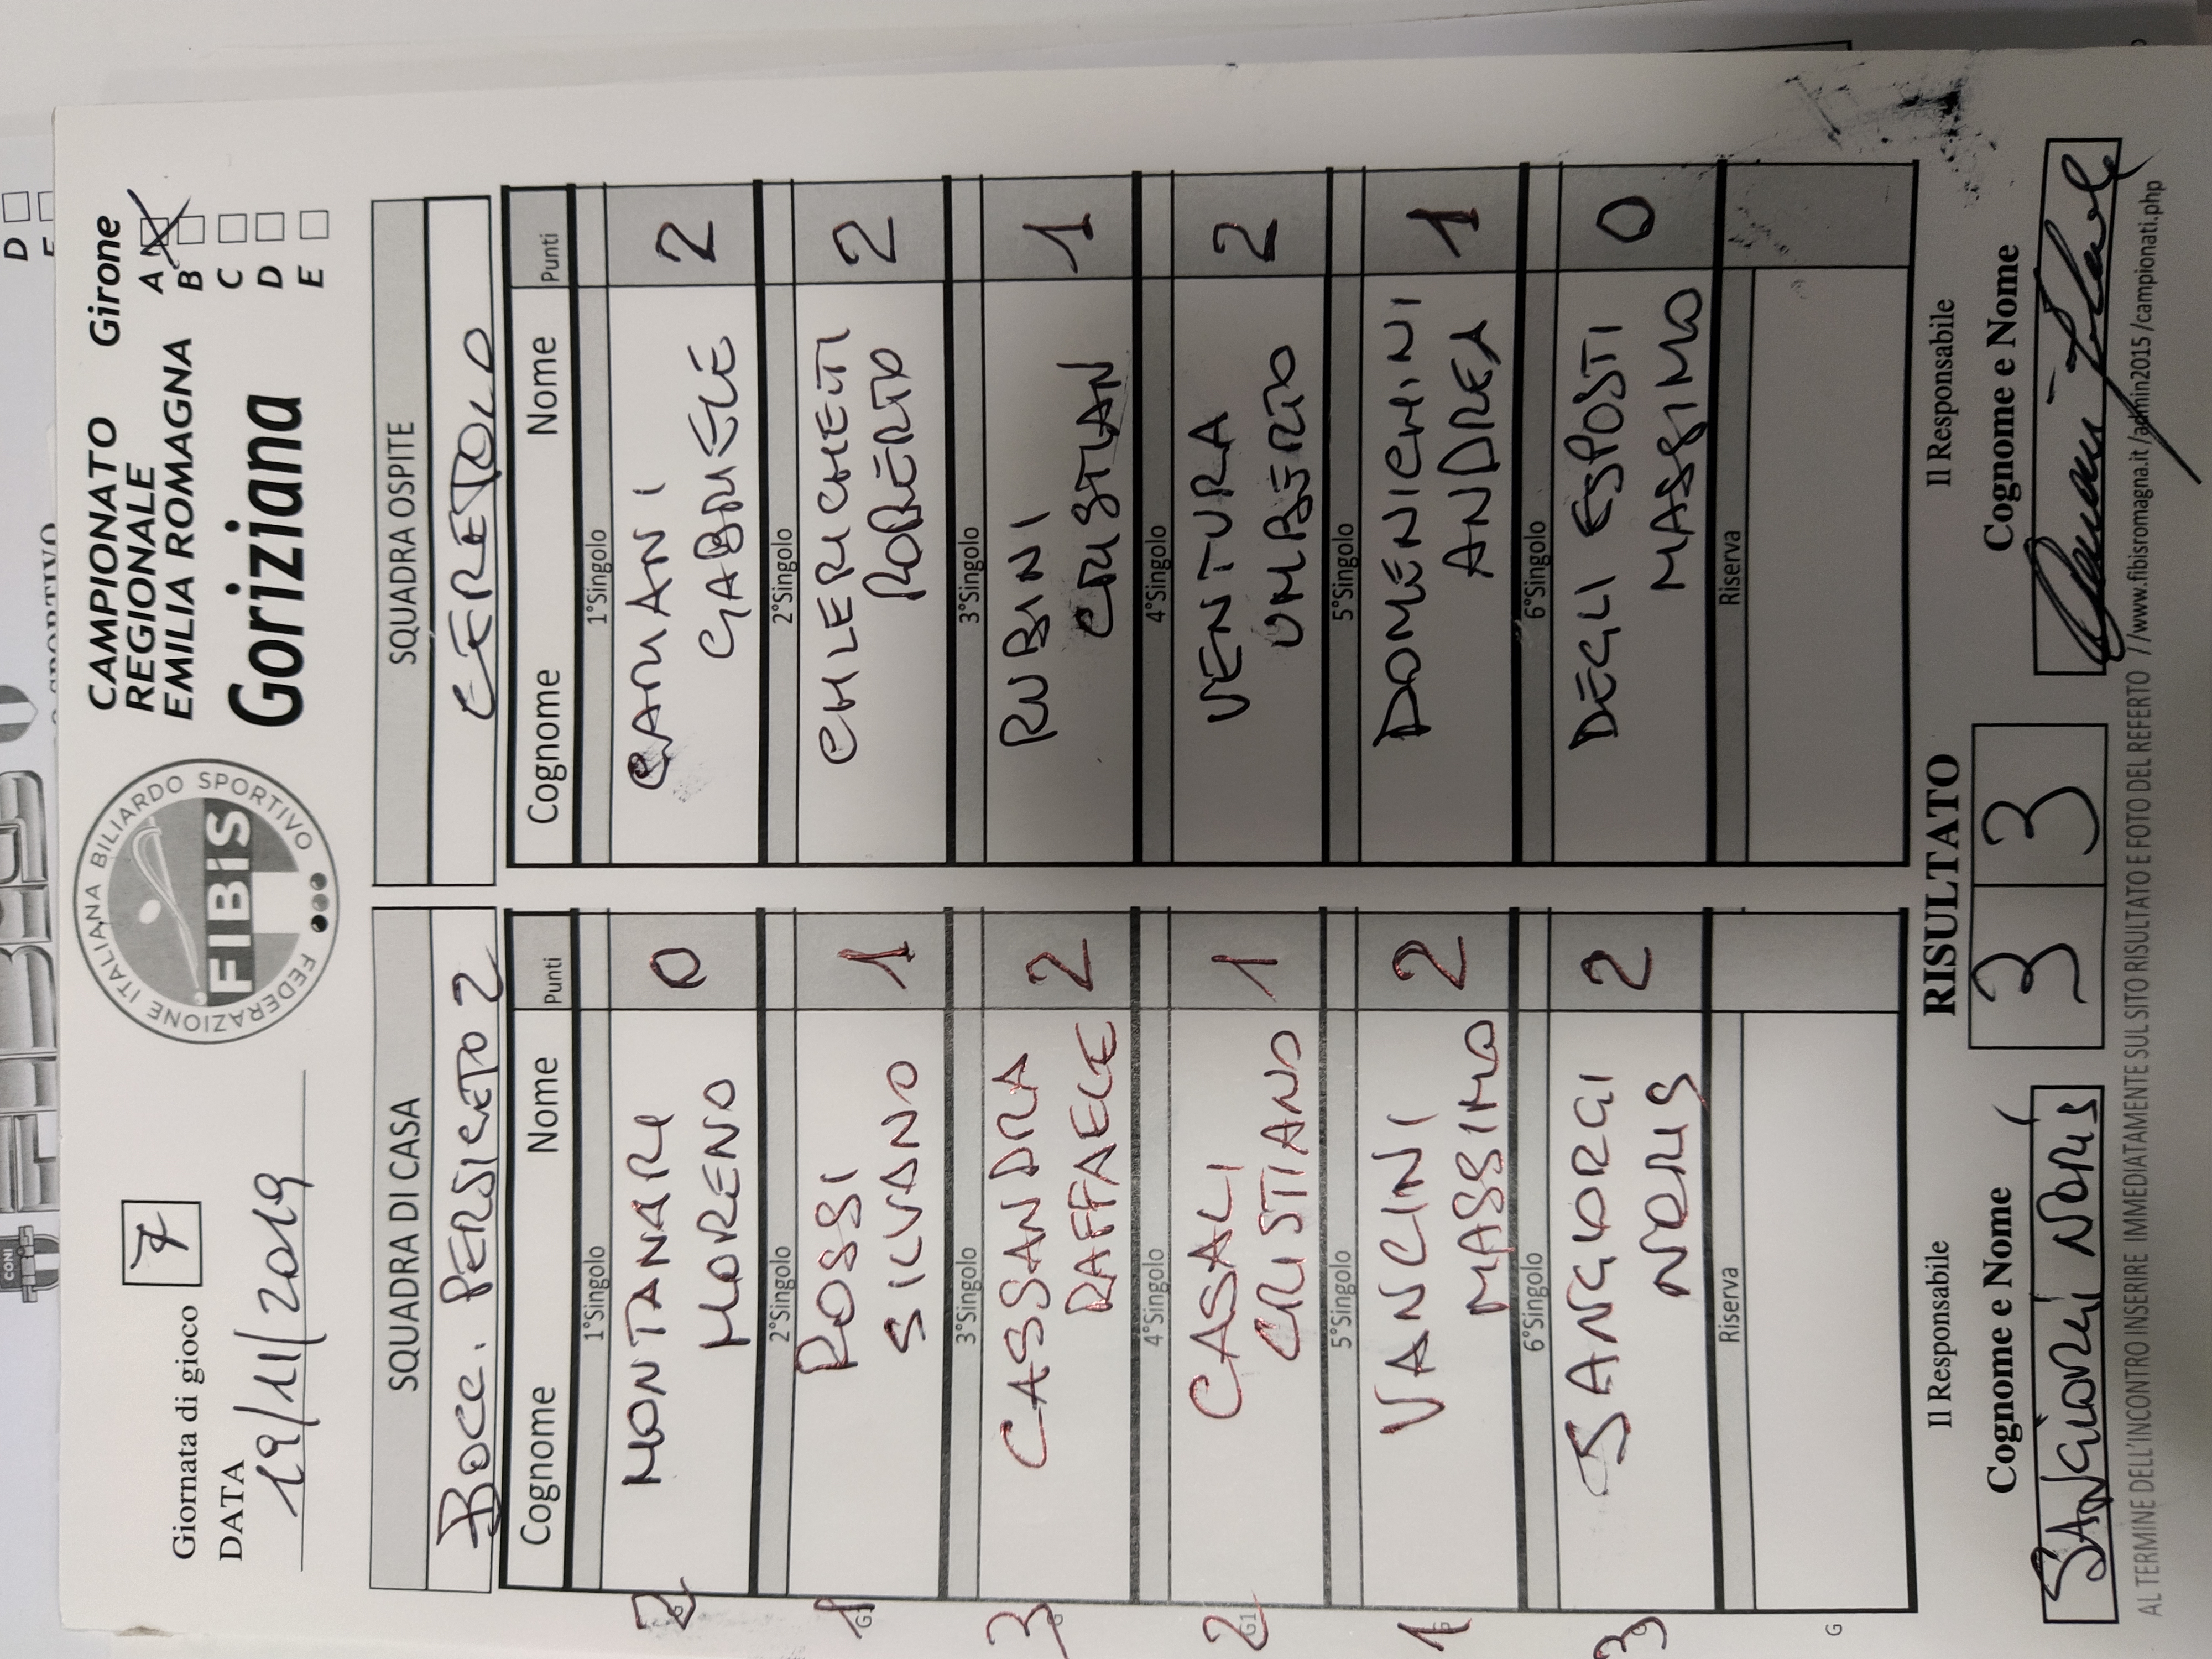 Giornata di gioco 7
DATA
19/11/2019
FEDERAZIONE ITALIANA BILIARDO SPORTIVO
FIBiS
CAMPIONATO
REGIONALE
EMILIA ROMAGNA
Goriziana
Girone
A
B
C
D
E
SQUADRA DI CASA
BOCC. PERSICETO 2
Cognome Nome Punti
1°Singolo
MONTANARI
MORENO 0
2°Singolo
ROSSI
SILVANO 1
3°Singolo
CASSANDRA
RAFFAELE 2
4°Singolo
CASALI
CRISTIANO 1
5°Singolo
VANCINI
MASSIMO 2
6°Singolo
SANGIORGI
NERIS 2
Riserva
2
1
3
2
1
3
G
SQUADRA OSPITE
CERETOLO
Cognome Nome Punti
1°Singolo
CAMANI
GABRIELE 2
2°Singolo
CHILERICHETI
ROBERTO 2
3°Singolo
RUBINI
CRISTIAN 1
4°Singolo
VENTURA
UMBERTO 2
5°Singolo
DOMENICHINI
ANDREA 1
6°Singolo
DEGLI ESPOSTI
MASSIMO 0
Riserva
Il Responsabile
Cognome e Nome
SANGIORGI NERIS
RISULTATO
3 3
Il Responsabile
Cognome e Nome
AL TERMINE DELL'INCONTRO INSERIRE IMMEDIATAMENTE SUL SITO RISULTATO E FOTO DEL REFERTO //www.fibisromagna.it/admin2015/campionati.php